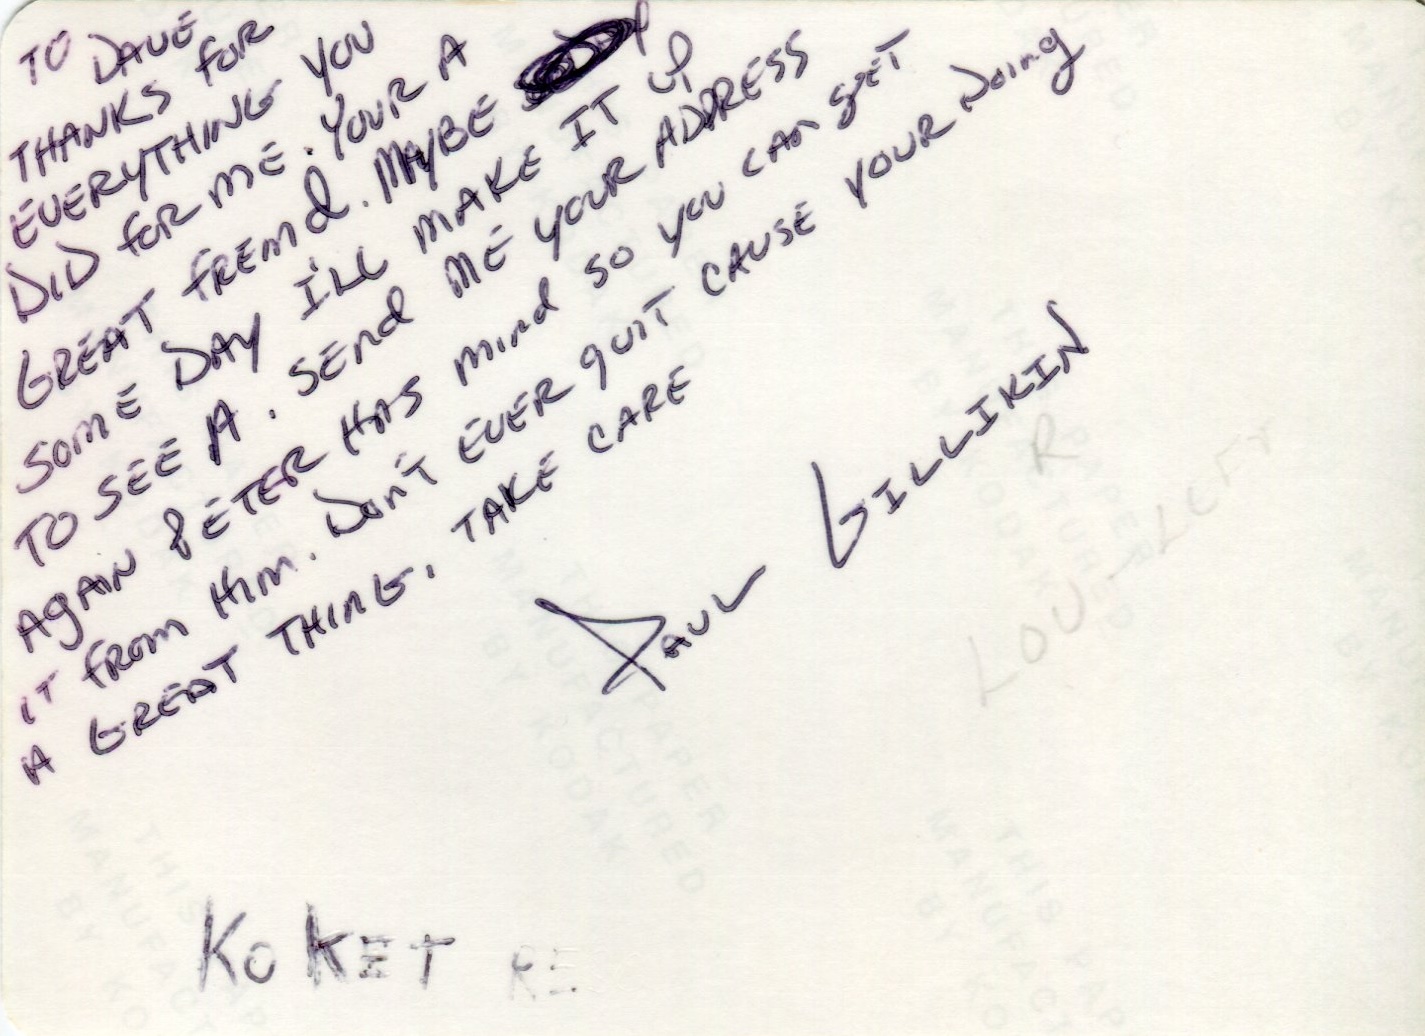 TO DAVE
THANKS FOR
EVERYTHING YOU
DID FOR ME. YOUR A
GREAT FREIND. MAYBE
SOME DAY I'LL MAKE IT UP
TO SEE A. SEND ME YOUR ADDRESS
AGAIN PETER HAS MIND SO YOU CAN GET
IT FROM HIM. DON'T EVER QUIT CAUSE YOUR DOING
A GREAT THING. TAKE CARE
PAUL GILLIKIN
R
LOU
KOKET RE
THIS PAPER
MANUFACTURED
BY KODAK